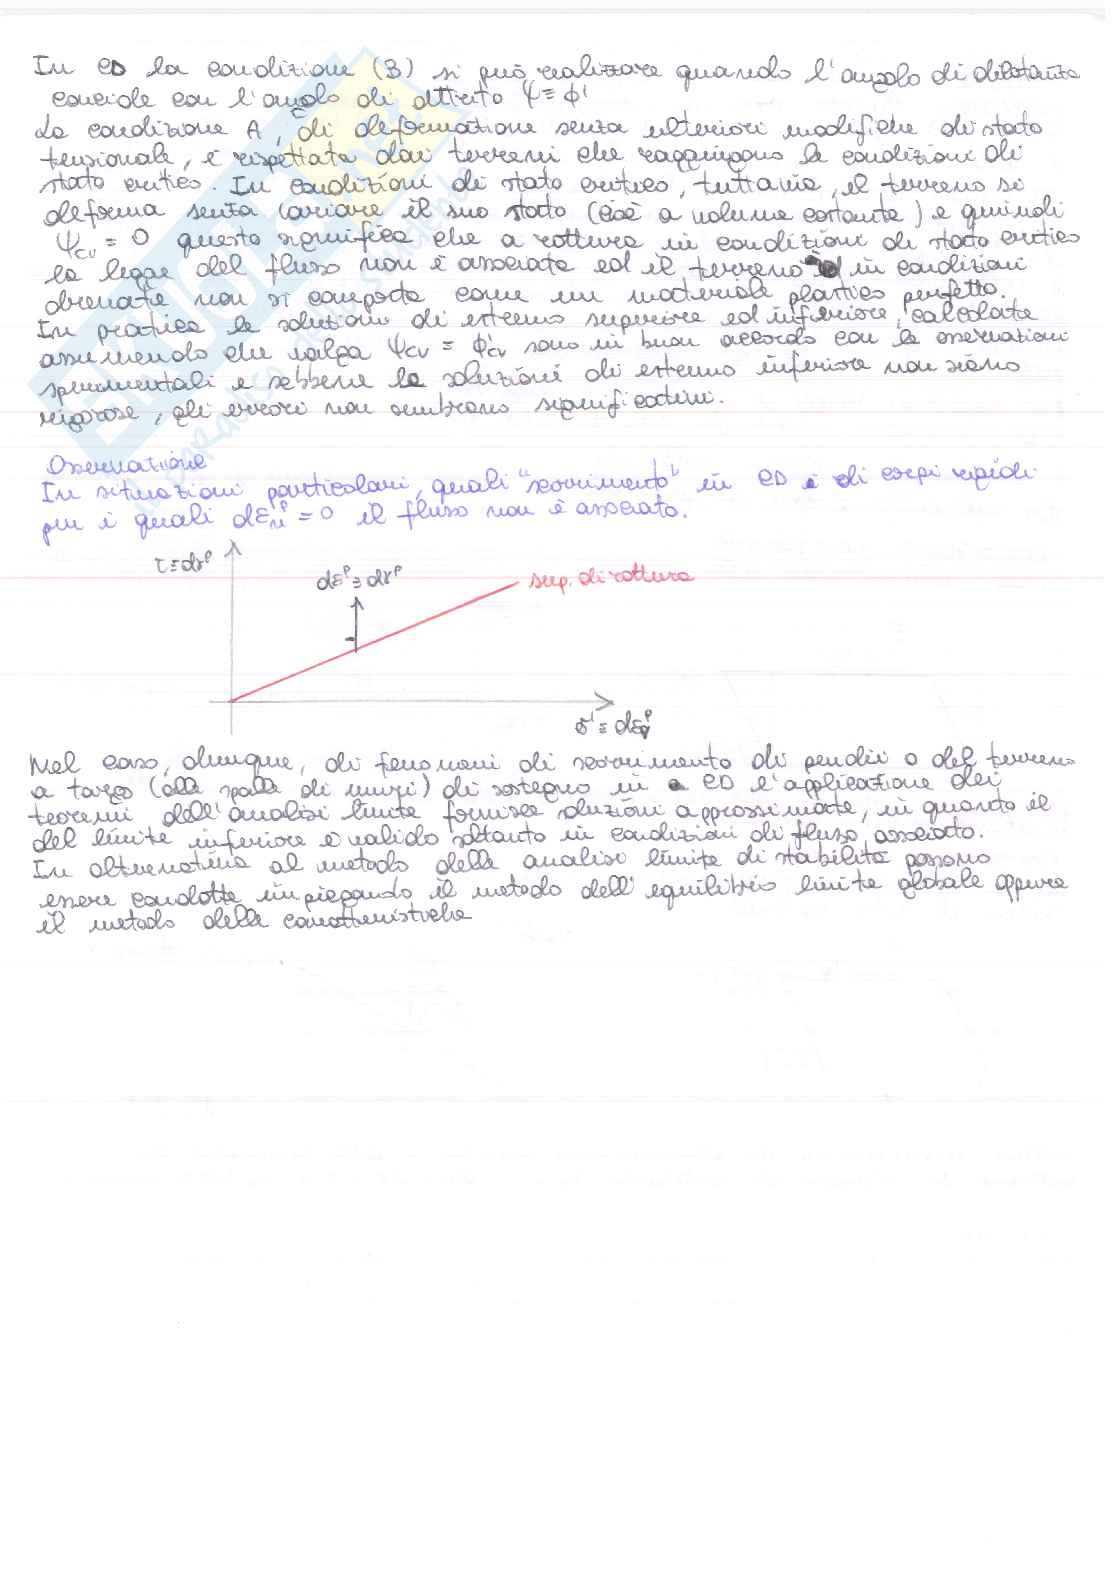 In CD la condizione (B) si può realizzare quando l'angolo di dilatanza
coincide con l'angolo di attrito ψ≡φ'
La condizione A, di deformazione senza ulteriori modifiche di stato
tensionale, è rispettata dai terreni che raggiungono le condizioni di
stato critico. In condizioni di stato critico, tuttavia, il terreno si
deforma senza variare il suo stato (cioè a volume costante) e quindi
ψcv = 0 questo significa che a rottura in condizioni di stato critico
la legge del flusso non è associata ed il terreno in condizioni
drenate non si comporta come un materiale plastico perfetto.
In pratica le soluzioni di estremo superiore ed inferiore, calcolate
assumendo che valga ψcv = φ'cv sono in buon accordo con le osservazioni
sperimentali e sebbene le soluzioni di estremo inferiore non siano
rigorose, gli errori non sembrano significativi.
Osservazione
In situazioni particolari, quali "scorrimento" in CD di corpi rigidi
per i quali dεᵖ = 0 il flusso non è associato.
τ≡dγᵖ
dεᵖ≡dγᵖ
sup. di rottura
σ'≡dεᵥᵖ
Nel caso, dunque, di fenomeni di scorrimento di pendii o del terreno
a tergo (alle spalle di muri) di sostegno in CD l'applicazione dei
teoremi dell'analisi limite fornisce soluzioni approssimate, in quanto il
del limite inferiore è valido soltanto in condizioni di flusso associato.
In alternativa al metodo delle analisi limite di stabilità possono
essere condotte impiegando il metodo dell'equilibrio limite globale oppure
il metodo delle caratteristiche